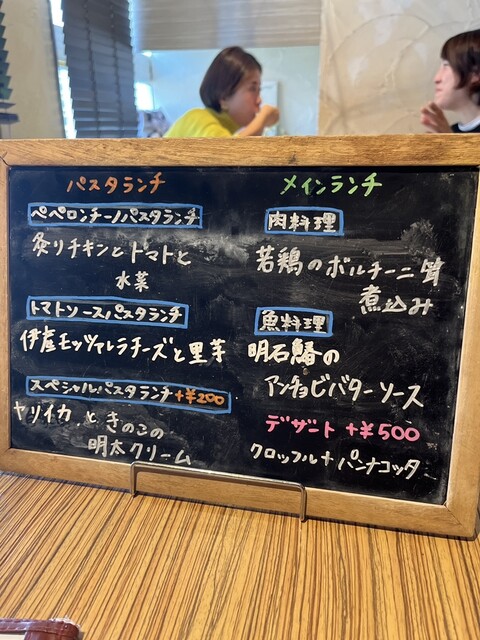 パスタランチ
ペペロンチーノパスタランチ
炙りチキンとトマトと
水菜
トマトソースパスタランチ
伊産モッツァレラチーズと里芋
スペシャルパスタランチ+¥200
ヤリイカ と きのこの
明太クリーム
メインランチ
肉料理
若鶏のポルチーニ茸
煮込み
魚料理
明石鰆の
アンチョビバターソース
デザート +¥500
クロッフル+パンナコッタ